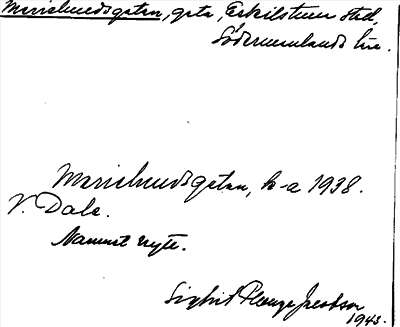 Mariehemsgatan, gata, Eskilstuna stad,
Södermanlands län.
Mariehemsgatan, k-a 1938.
V. Dala.
Namnet nytt.
Sigfrid Plenge Jacobson
1943.